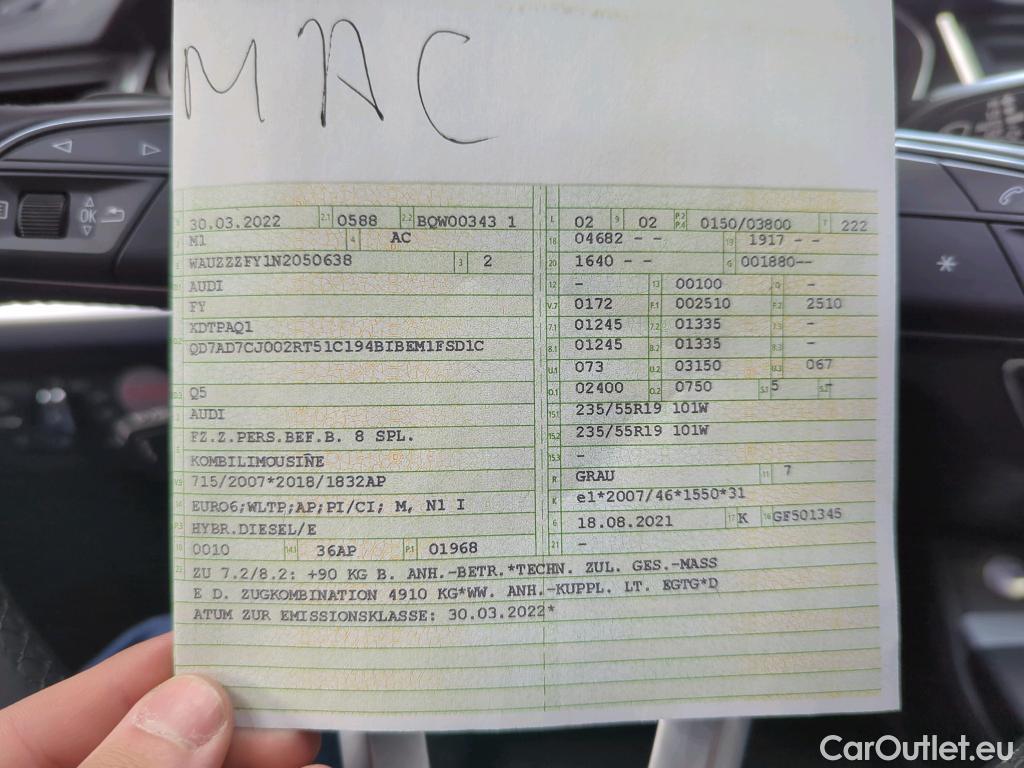 MAC
30.03.2022 2.1 0588 2.2 BQW00343 1
M1 4 AC
WAUZZZFY1N2050638 3 2
AUDI
FY
KDTPAQ1
QD7AD7CJ002RT51C194BIBEM1FSD1C
Q5
AUDI
FZ.Z.PERS.BEF.B. 8 SPL.
KOMBILIMOUSINE
715/2007*2018/1832AP
14 EURO6;WLTP;AP;PI/CI; M, N1 I
P.3 HYBR.DIESEL/E
10 0010 14.1 36AP P.1 01968
22 ZU 7.2/8.2: +90 KG B. ANH.-BETR.*TECHN. ZUL. GES.-MASS
E D. ZUGKOMBINATION 4910 KG*WW. ANH.-KUPPL. LT. EGTG*D
ATUM ZUR EMISSIONSKLASSE: 30.03.2022*
L 02 9 02 P.2 P.4 0150/03800 T 222
18 04682 - - 19 1917 - -
20 1640 - - G 001880--
12 - 13 00100 Q -
V.7 0172 F.1 002510 F.2 2510
7.1 01245 7.2 01335 7.3 -
8.1 01245 8.2 01335 8.3 -
U.1 073 U.2 03150 U.3 067
O.1 02400 O.2 0750 S.1 5 S.2 -
15.1 235/55R19 101W
15.2 235/55R19 101W
15.3 -
R GRAU 11 7
K e1*2007/46*1550*31
6 18.08.2021 17 K 16 GF501345
21 -
OK
CarOutlet.eu